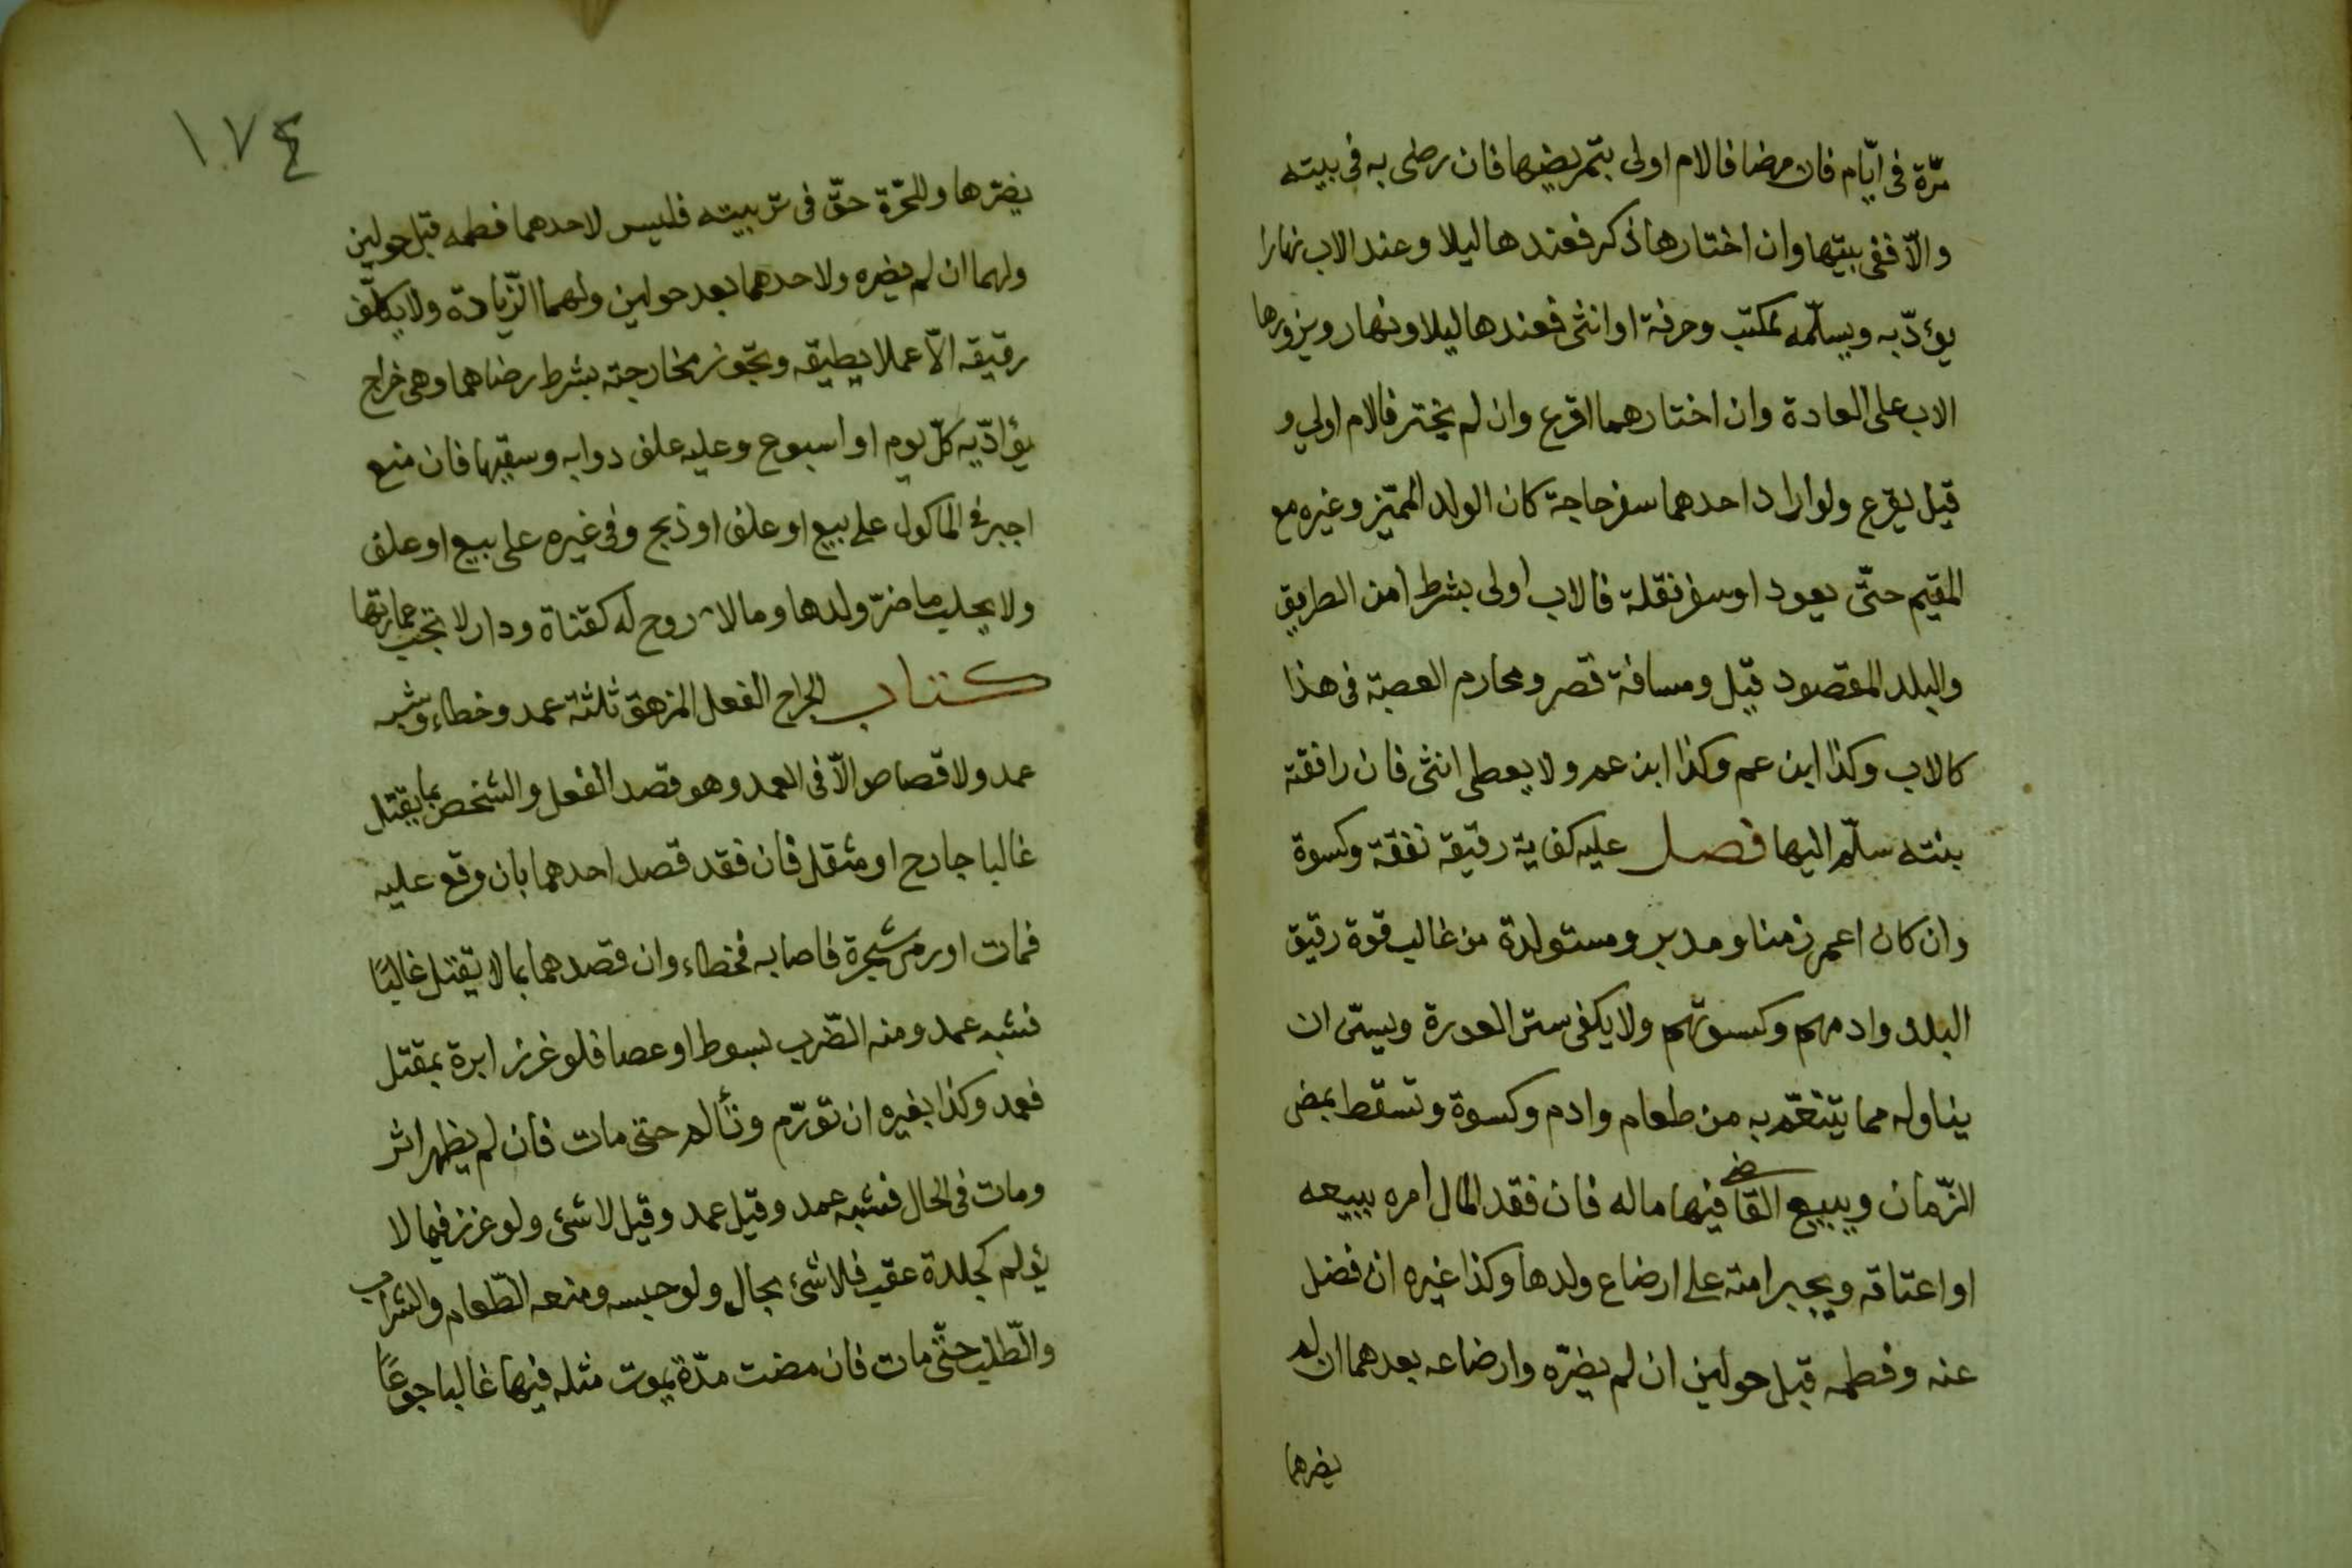 مرّة فى ايّام فان مرضا فالام اولى بتمريضها فان رضى به فى بيته
والّا ففى بيتها وان اختارها ذكر فعندها ليلا وعند الاب نهارا
يؤدّبه ويسلّمه لمكتب وحرفة او انثى فعندها ليلا ونهار ويزورها
الاب على العادة وان اختارهما اقرع وان لم يختر فالام اولى و
قيل يقرع ولو اراد احدهما سفر حاجة كان الولد المميّز وغيره مع
المقيم حتّى يعود او سفر نقلة فالاب اولى بشرط امن الطريق
والبلد المقصود قيل ومسافة قصر ومحارم العصبة فى هذا
كالاب وكذا ابن عم وكذا ابن عم ولا يعطى انثى فان رافقته
بنته سلّم اليها فصل عليه كفاية رقيقه نفقة وكسوة
وان كان اعمى زمنا ومدبر ومستولدة من غالب قوة رقيق
البلد وادمهم وكسوتهم ولا يكفى ستر العورة ويسنّ ان
يناوله مما يتنعّم به من طعام وادم وكسوة وتسقط بمضى
الزّمان ويبيع القاضى فيها ماله فان فقد المال امره ببيعه
او اعتاقه ويجبر امته على ارضاع ولدها وكذا غيره ان فضل
عنه وفطمه قبل حولين ان لم يضرّه وارضاعه بعدهما ان لم
يضرها
١٧٤
يضرّها وللحرّة حقّ فى تربيته فليس لاحدهما فطمه قبل حولين
ولهما ان لم يضره ولاحدهما بعد حولين ولهما الزّيادة ولا يكلّف
رقيقه الّا عملا يطيقه وتجوز مخارجته بشرط رضاهما وهى خراج
يؤادّيه كلّ يوم او اسبوع وعليه علف دوابه وسقيها فان منع
اجبر فى المأكول على بيع او علف او ذبح وفى غيره على بيع او علف
ولا يحلب ما ضرّ ولدها وما لا روح له كقناة ودار لا تجب عمارتها
كتاب الجراح الفعل المزهق ثلثة عمد وخطاء وشبه
عمد ولا قصاص الّا فى العمد وهو قصد الفعل والشخص بما يقتل
غالبا جارح او مثقل فان فقد قصد احدهما بان وقع عليه
فمات او رمى شجرة فاصابه فخطاء وان قصدهما بما لا يقتل غالبًا
فشبه عمد ومنه الضّرب بسوط او عصا فلو غرز ابرة بمقتل
فعمد وكذا بغيره ان تورّم وتألم حتى مات فان لم يظهر اثر
ومات فى الحال فشبه عمد وقيل عمد وقيل لا شئ ولو غرز فيما لا
يؤلم كجلدة عقب فلا شئ بحال ولو حبسه ومنعه الطّعام والشراب
والطّلب حتّى مات فان مضت مدّة يموت مثله فيها غالبا جوعًا